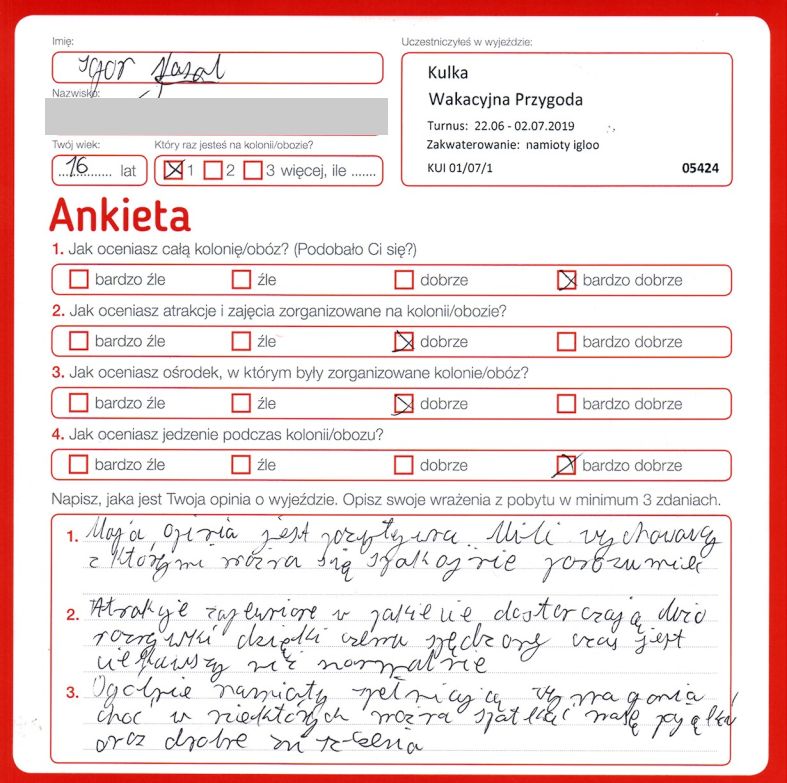 Imię:
Igor
Nazwisko:
Uczestniczyłeś w wyjeździe:
Kulka
Wakacyjna Przygoda
Turnus: 22.06 - 02.07.2019
Zakwaterowanie: namioty igloo
KUI 01/07/1 05424
Twój wiek: Który raz jesteś na kolonii/obozie?
16 lat 1 2 3 więcej, ile .......
Ankieta
1. Jak oceniasz całą kolonię/obóz? (Podobało Ci się?)
bardzo źle źle dobrze bardzo dobrze
2. Jak oceniasz atrakcje i zajęcia zorganizowane na kolonii/obozie?
bardzo źle źle dobrze bardzo dobrze
3. Jak oceniasz ośrodek, w którym były zorganizowane kolonie/obóz?
bardzo źle źle dobrze bardzo dobrze
4. Jak oceniasz jedzenie podczas kolonii/obozu?
bardzo źle źle dobrze bardzo dobrze
Napisz, jaka jest Twoja opinia o wyjeździe. Opisz swoje wrażenia z pobytu w minimum 3 zdaniach.
1. Moja opinia jest pozytywna. Mili wychowawcy
z którymi można się spokojnie porozumieć
2. Atrakcje zapewnione w pakiecie dostarczają dużo
rozrywki dzięki czemu spędzony czas jest
ciekawszy niż normalnie
3. Ogólnie namioty spełniają wymagania,
choć w niektórych można spotkać małe pająki
oraz drobne zniszczenia